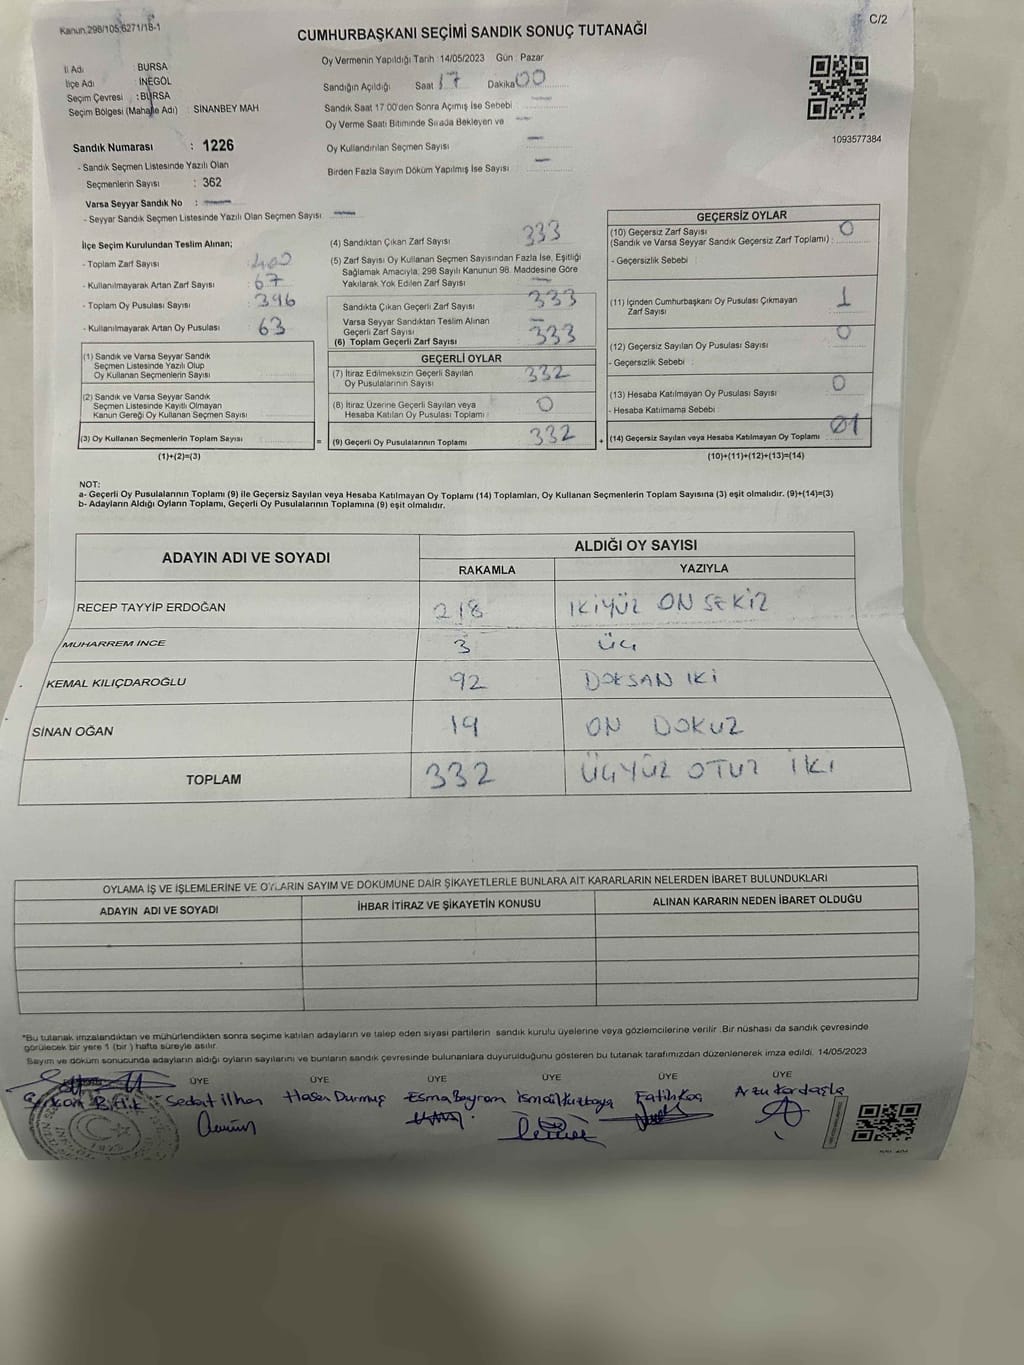 Kanun.298/105,6271/18-1
C/2
CUMHURBAŞKANI SEÇİMİ SANDIK SONUÇ TUTANAĞI
İl Adı : BURSA
İlçe Adı : İNEGÖL
Seçim Çevresi : BURSA
Seçim Bölgesi (Mahalle Adı) : SİNANBEY MAH
Oy Vermenin Yapıldığı Tarih :14/05/2023 Gün : Pazar
Sandığın Açıldığı Saat 17 Dakika 00
Sandık Saat 17.00'den Sonra Açımış İse Sebebi
Oy Verme Saati Bitiminde Sırada Bekleyen ve
Oy Kullandırılan Seçmen Sayısı
Birden Fazla Sayım Döküm Yapılmış İse Sayısı
1093577384
Sandık Numarası : 1226
- Sandık Seçmen Listesinde Yazılı Olan
Seçmenlerin Sayısı : 362
Varsa Seyyar Sandık No :
- Seyyar Sandık Seçmen Listesinde Yazılı Olan Seçmen Sayısı
İlçe Seçim Kurulundan Teslim Alınan;
- Toplam Zarf Sayısı 400
- Kullanılmayarak Artan Zarf Sayısı : 67
- Toplam Oy Pusulası Sayısı : 396
- Kullanılmayarak Artan Oy Pusulası 63
(1) Sandık ve Varsa Seyyar Sandık
Seçmen Listesinde Yazılı Olup
Oy Kullanan Seçmenlerin Sayısı
(2) Sandık ve Varsa Seyyar Sandık
Seçmen Listesinde Kayıtlı Olmayan
Kanun Gereği Oy Kullanan Seçmen Sayısı
(3) Oy Kullanan Seçmenlerin Toplam Sayısı =
(1)+(2)=(3)
(4) Sandıktan Çıkan Zarf Sayısı 333
(5) Zarf Sayısı Oy Kullanan Seçmen Sayısından Fazla İse, Eşitliği
Sağlamak Amacıyla, 298 Sayılı Kanunun 98. Maddesine Göre
Yakılarak Yok Edilen Zarf Sayısı
Sandıkta Çıkan Geçerli Zarf Sayısı 333
Varsa Seyyar Sandıktan Teslim Alınan
Geçerli Zarf Sayısı
(6) Toplam Geçerli Zarf Sayısı 333
GEÇERLİ OYLAR
(7) İtiraz Edilmeksizin Geçerli Sayılan
Oy Pusulalarının Sayısı 332
(8) İtiraz Üzerine Geçerli Sayılan veya
Hesaba Katılan Oy Pusulası Toplamı 0
(9) Geçerli Oy Pusulalarının Toplamı 332 +
GEÇERSİZ OYLAR
(10) Geçersiz Zarf Sayısı 0
(Sandık ve Varsa Seyyar Sandık Geçersiz Zarf Toplamı) :
- Geçersizlik Sebebi :
(11) İçinden Cumhurbaşkanı Oy Pusulası Çıkmayan
Zarf Sayısı 1
(12) Geçersiz Sayılan Oy Pusulası Sayısı 0
- Geçersizlik Sebebi :
(13) Hesaba Katılmayan Oy Pusulası Sayısı 0
- Hesaba Katılmama Sebebi :
(14) Geçersiz Sayılan veya Hesaba Katılmayan Oy Toplamı 01
(10)+(11)+(12)+(13)=(14)
NOT:
a- Geçerli Oy Pusulalarının Toplamı (9) ile Geçersiz Sayılan veya Hesaba Katılmayan Oy Toplamı (14) Toplamları, Oy Kullanan Seçmenlerin Toplam Sayısına (3) eşit olmalıdır. (9)+(14)=(3)
b- Adayların Aldığı Oyların Toplamı, Geçerli Oy Pusulalarının Toplamına (9) eşit olmalıdır.
ADAYIN ADI VE SOYADI
ALDIĞI OY SAYISI
RAKAMLA YAZIYLA
RECEP TAYYİP ERDOĞAN 218 İKİYÜZ ON SEKİZ
MUHARREM İNCE 3 ÜÇ
KEMAL KILIÇDAROĞLU 92 DOKSAN İKİ
SİNAN OĞAN 19 ON DOKUZ
TOPLAM 332 ÜÇYÜZ OTUZ İKİ
OYLAMA İŞ VE İŞLEMLERİNE VE OYLARIN SAYIM VE DÖKÜMÜNE DAİR ŞİKAYETLERLE BUNLARA AİT KARARLARIN NELERDEN İBARET BULUNDUKLARI
ADAYIN ADI VE SOYADI İHBAR İTİRAZ VE ŞİKAYETİN KONUSU ALINAN KARARIN NEDEN İBARET OLDUĞU
*Bu tutanak imzalandıktan ve mühürlendikten sonra seçime katılan adayların ve talep eden siyasi partilerin sandık kurulu üyelerine veya gözlemcilerine verilir .Bir nüshası da sandık çevresinde
görülecek bir yere 1 (bir ) hafta süreyle asılır.
Sayım ve döküm sonucunda adayların aldığı oyların sayılarını ve bunların sandık çevresinde bulunanlara duyurulduğunu gösteren bu tutanak tarafımızdan düzenlenerek imza edildi. 14/05/2023
ÜYE ÜYE ÜYE ÜYE ÜYE ÜYE
Sedat ilhan Hasan Durmuş Esma Bayram Fatih Koç Arzu Kardaşla